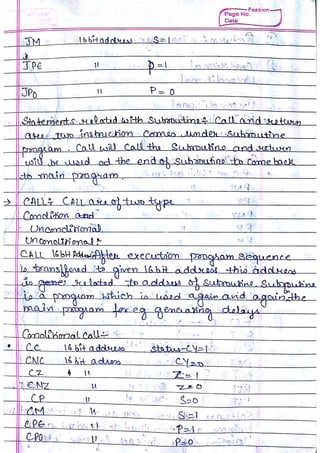 Passion
Page No.
Date
JM 16 bit address S=1
JPE " P=1
JPO " P=0
Statements related with Subroutine: Call and return
are two instruction comes under Subroutine
program. Call will call the Subroutine and return
will be used at the end of Subroutine to come back
to main program.
→ CALL: CALL are of two type
Condition and
Unconditional.
Unconditional:
CALL 16 bit Address After execution program sequence
is transfered to given 16 bit address this address
is related to address of Subroutine. Subroutine
is a program which is used again and again the
main program for eg. gencrating delays
Conditional Call:-
• CC 16 bit address Status-CY=1
CNC 16 bit adress CY=0
CZ " Z=1
CNZ " Z=0
CP " S=0
CM " S=1
CPE " P=1
CPO " P=0